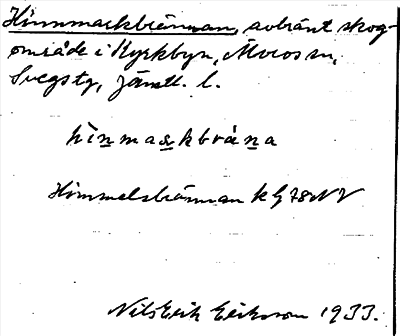 Hinnmarkbrännan, avbränt skog-
område i Kyrkbyn,
Svegs tg, Jämtl. l.
hinmaskbräna
Himmelsbrännan k G 78 NV
Nils Erik Erikson 1933.